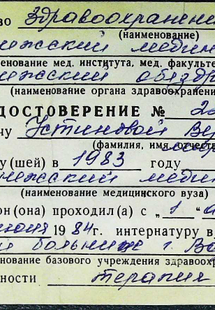 во Здравоохранения
нежский медици
(наименование)
менование мед. института, мед. факультет
нежский облздра
(наименование органа здравоохранени
ДОСТОВЕРЕНИЕ № 2
чу Устиновой
(фамилия, имя, отчест
у(шей) в 1983 году
нежский медици
(наименование медицинского вуза)
он (она) проходил(а) с 1
июня 1984г. интернатуру в
больнице г. Во
нование базового учреждения здравоохр
ности терапия